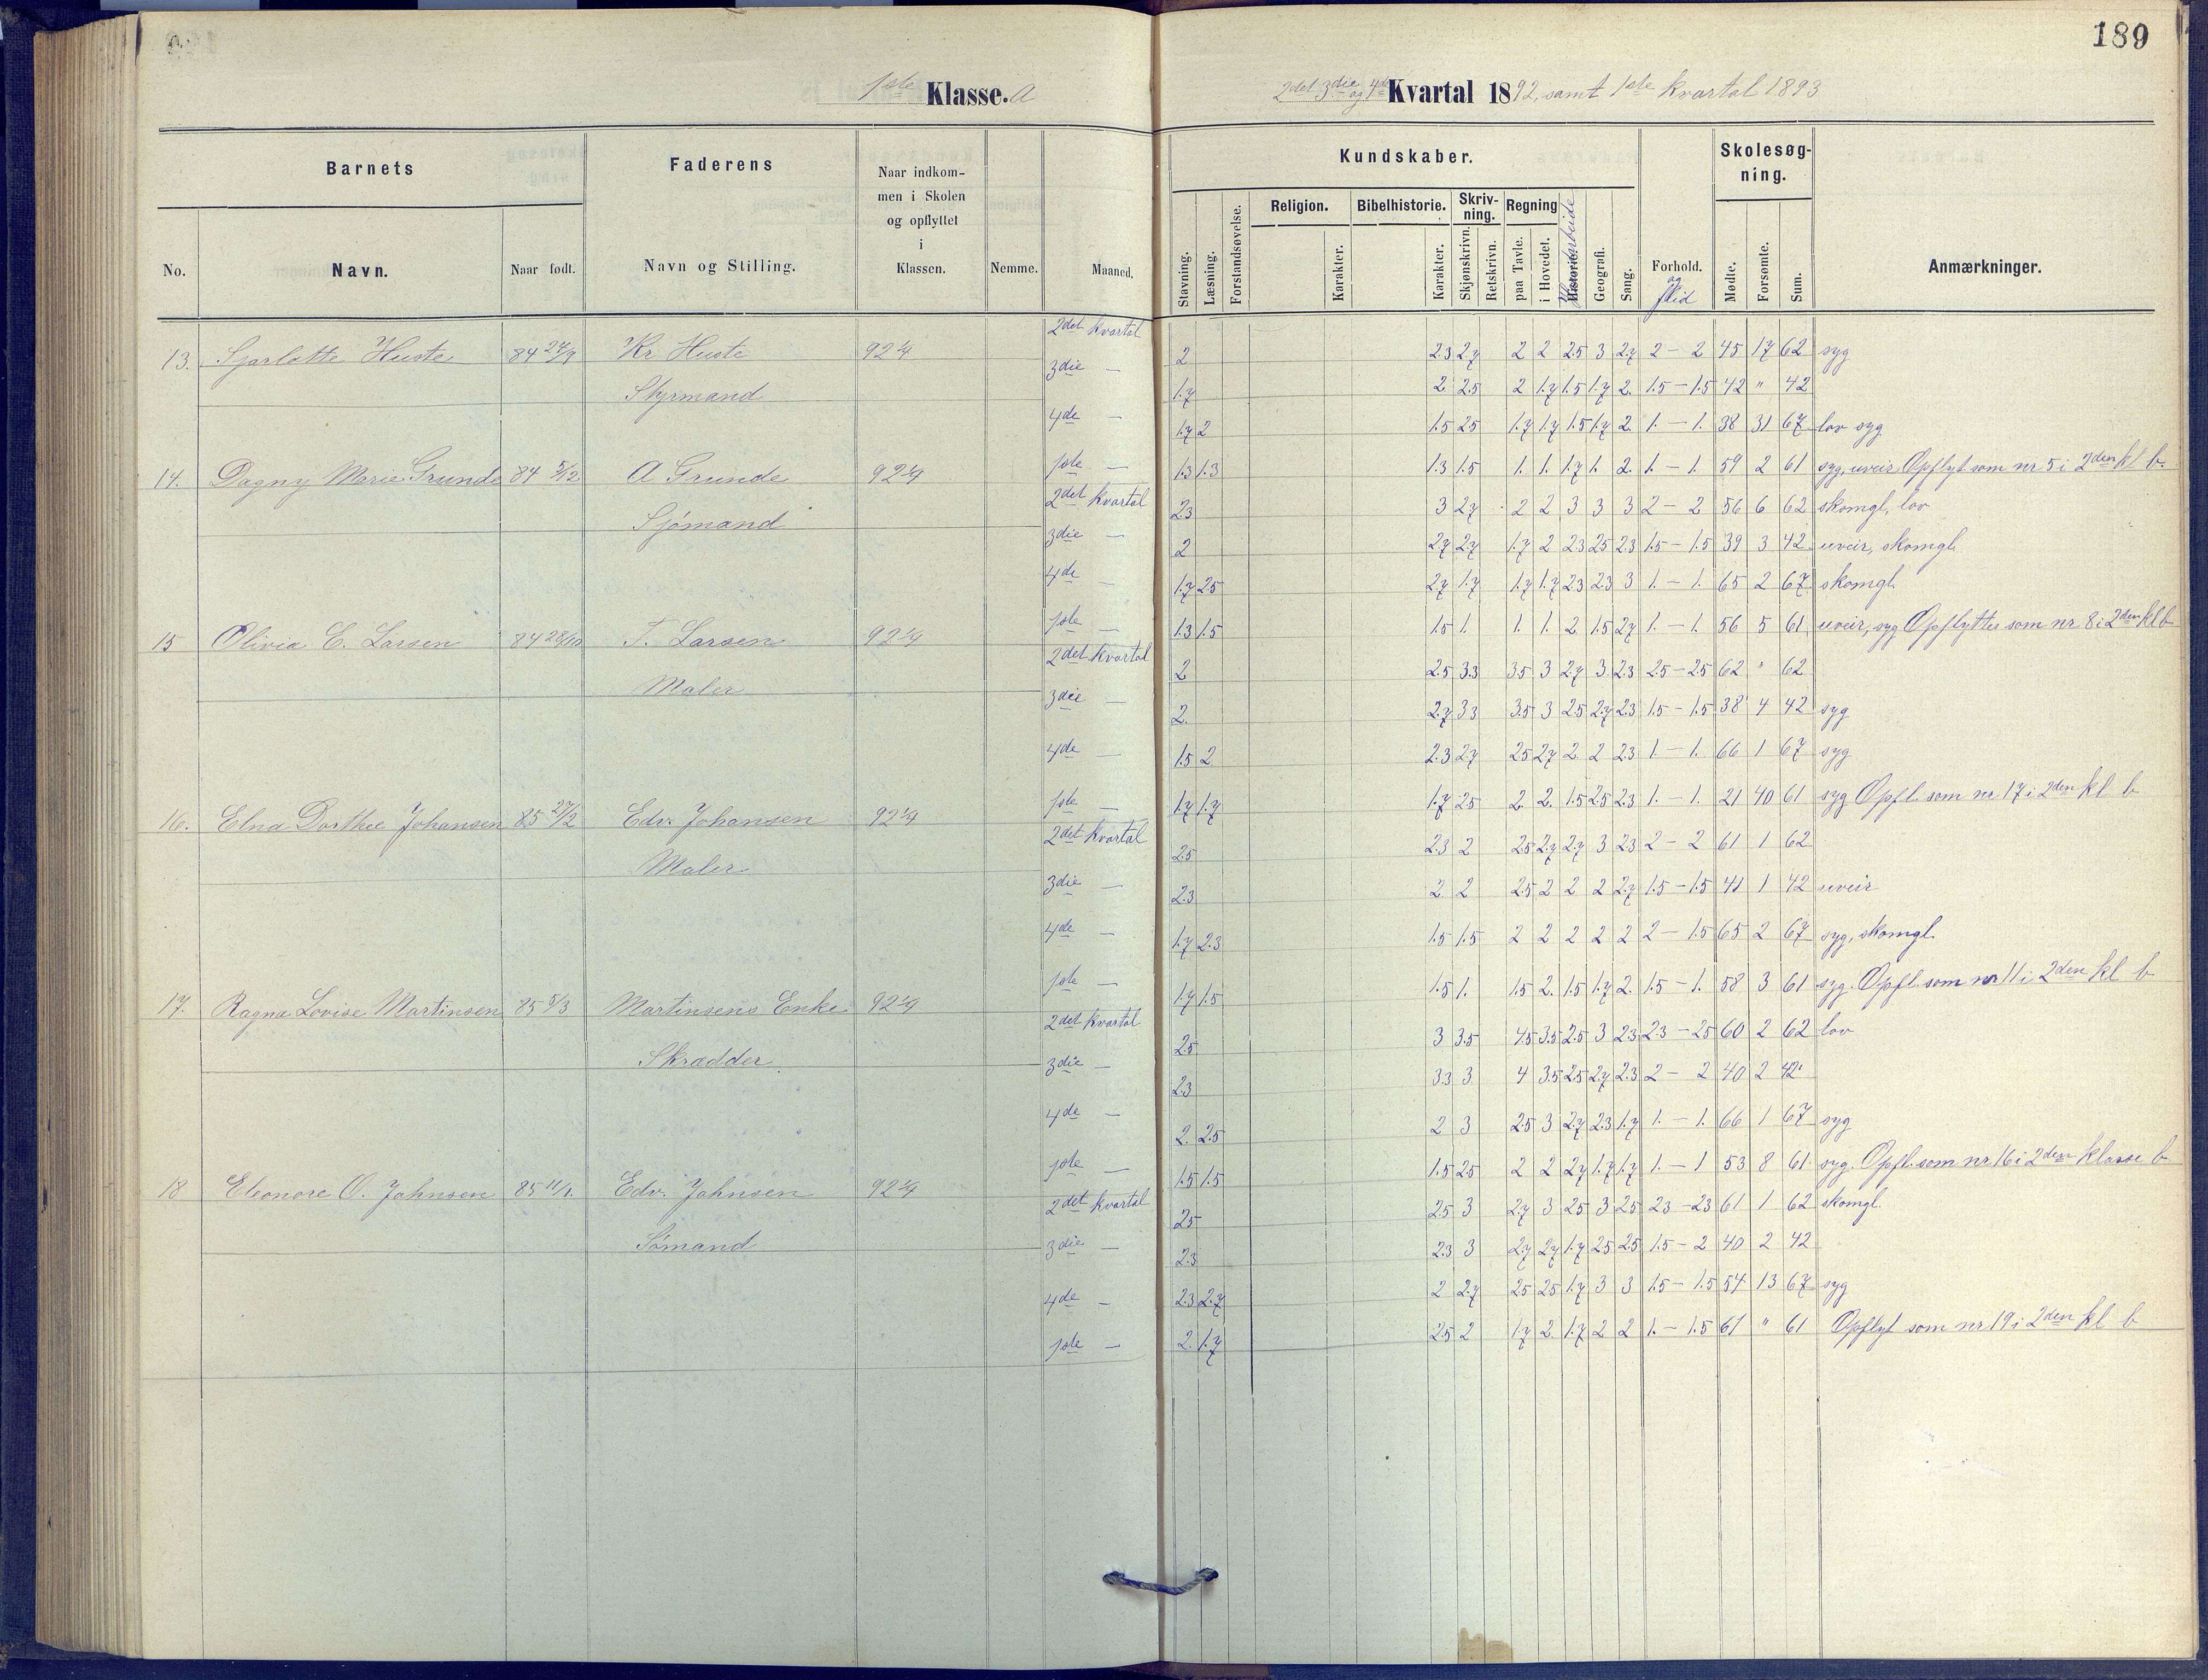 189
1ste Klasse. A
2det 3die og 4de Kvartal 1892, samt 1ste kvartal 1893
Barnets
Faderens
Naar indkommen i Skolen og opflyttet i Klassen.
Kundskaber.
Skolesøgning.
No.
Navn.
Naar født.
Navn og Stilling.
Nemme.
Maaned.
Stavning.
Læsning.
Forstandsøvelse.
Religion.
Karakter.
Bibelhistorie.
Karakter.
Skrivning.
Skjønskrivn.
Retskrivn.
Regning
paa Tavle.
i Hovedet.
Historie.
Haandarbeide
Geografi.
Sang.
Forhold.
og flid
Mødte.
Forsømte.
Sum.
Anmærkninger.
13. Sjarlotte Huste 84 27/9 Kr Huste 92 1/4 2det kvartal 2 2.3 2.7 2 2 2.5 3 2.7 2 - 2 45 17 62 syg
Styrmand 3die — 1.7 2 2.5 2 1.7 1.5 1.7 2. 1.5 - 1.5 42 " 42
4de — 1.7 2 1.5 2.5 1.7 1.7 1.5 1.7 2. 1. - 1. 38 31 67 lov syg
1ste — 1.3 1.3 1.3 1.5 1. 1. 1.7 1. 2. 1. - 1. 59 2 61 syg, uveir Opflyt som nr 5 i 2den kl b.
14. Dagny Marie Grunde 84 5/12 A Grunde 92 1/4 2det kvartal 2.3 3 2.7 2 2 3 3 3 2 - 2 56 6 62 skomgl, lov
Sjømand 3die — 2 2.7 2.7 1.7 2 2.3 2.5 2.3 1.5 - 1.5 39 3 42 uveir, skomgl
4de — 1.7 2.5 2.7 1.7 1.7 1.7 2.3 2.3 3 1. - 1. 65 2 67 skomgl.
1ste — 1.3 1.5 1.5 1. 1. 1. 2 1.5 2.7 1. - 1. 56 5 61 uveir, syg Opflyttes som nr 8 i 2den kl b
15 Olivia C. Larsen 84 28/10 T. Larsen 92 1/4 2det kvartal 2 2.5 3.3 3.5 3 2.7 3 2.3 2.5 - 2.5 62 " 62
Maler 3die — 2. 2.7 3.3 3.5 3 2.5 2.7 2.3 1.5 - 1.5 38 4 42 syg
4de — 1.5 2 2.3 2.7 2.5 2.7 2 2 2.3 1 - 1. 66 1 67 syg
1ste — 1.7 1.7 1.7 2.5 2. 2. 1.5 2.5 2.3 1. - 1. 21 40 61 syg Opfl. som nr 17 i 2den kl b
16. Elna Dorthee Johansen 85 27/2 Edv. Johansen 92 1/4 2det kvartal 2.5 2.3 2 2.5 2.7 2.7 3 2.3 2 - 2 61 1 62
Maler 3die — 2.3 2 2 2.5 2 2 2 2.7 1.5 - 1.5 41 1 42 uveir
4de — 1.7 2.3 1.5 1.5 2 2 2 2 2 2 - 1.5 65 2 67 syg, skomgl.
1ste — 1.7 1.5 1.5 1. 1.5 2. 1.5 1.7 2. 1.5 - 1. 58 3 61 syg. Opfl. som nr 11 i 2den kl b
17. Ragna Lovise Martinsen 85 5/3 Martinsens Enke 92 1/4 2det kvartal 2.5 3 3.5 4.5 3.5 2.5 3 2.3 2.3 - 2.5 60 2 62 lov
Skrædder 3die — 2.3 3.3 3 4 3.5 2.5 2.7 2.3 2 - 2 40 2 42
4de — 2. 2.5 2 3 2.5 3 2.7 2.3 1.7 1. - 1. 66 1 67 syg
1ste — 1.5 1.5 1.5 2.5 2 2 2.7 1.7 1.7 1. - 1 53 8 61 syg. Opfl. som nr 16 i 2den klasse b
18 Eleonore O. Johnsen 85 11/1. Edv. Johnsen 92 1/4 2det kvartal 2.5 2.5 3 2.7 3 2.5 3 2.5 2.3 - 2.3 61 1 62 skomgl.
Sømand 3die — 2.3 2.3 3 2.7 2.7 1.7 2.5 2.5 1.5 - 2 40 2 42
4de — 2.3 2.7 2 2.7 2.5 2.5 1.7 3 3 1.5 - 1.5 54 13 67 syg
1ste — 2. 1.7 2.5 2 1.7 2. 1.7 2 2 1. - 1.5 61 " 61 Opflyt som nr 19 i 2den kl b